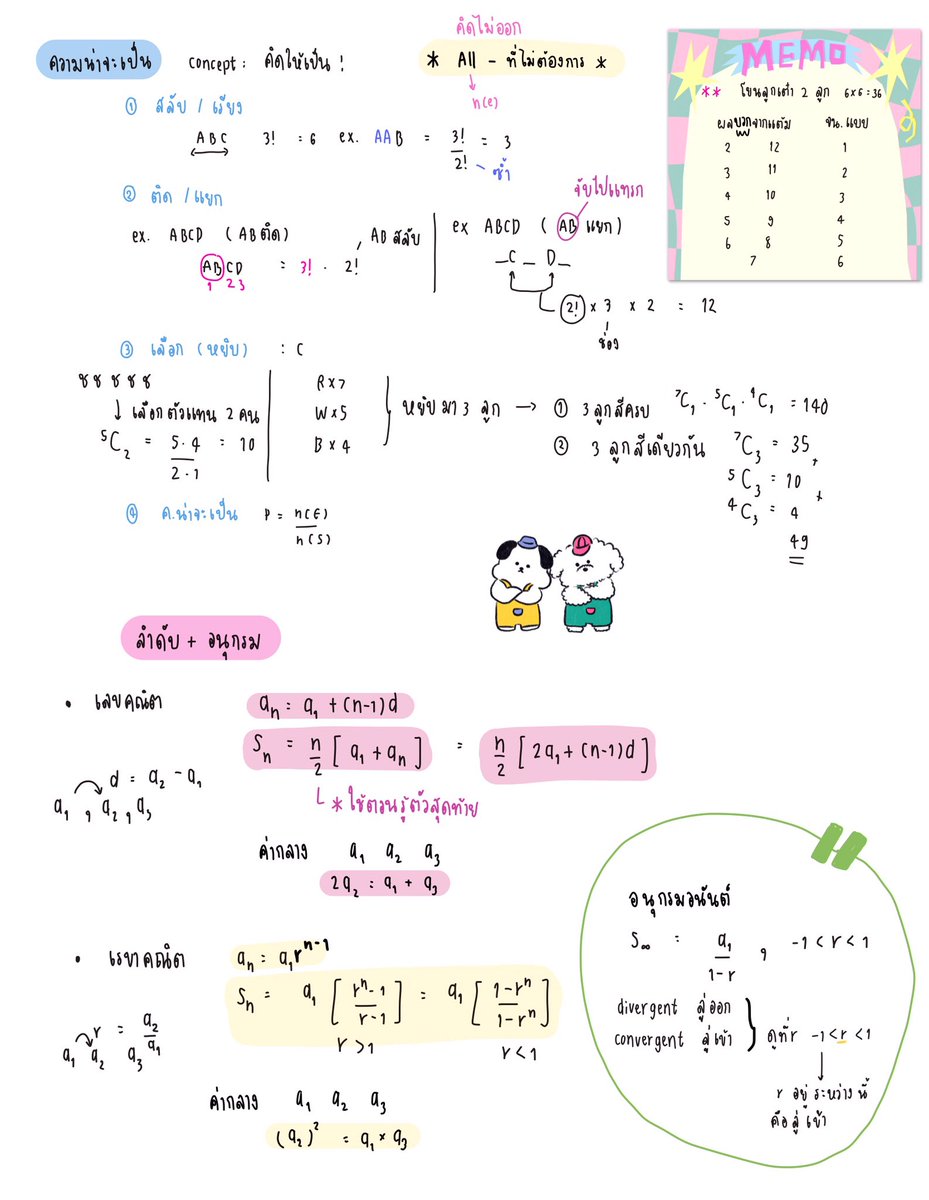 ความน่าจะเป็น concept : คิดให้เป็น !
คิดไม่ออก
* All - ที่ไม่ต้องการ *
n(e)
① สลับ / เรียง
ABC 3! = 6 ex. AAB = 3!/2! = 3
ซ้ำ
② ติด / แยก
ex. ABCD (AB ติด)
ABCD = 3! · 2!
1 2 3
AB สลับ
จับไปแทรก
ex ABCD (AB แยก)
_C_D_
2! x 3 x 2 = 12
ช่อง
③ เลือก (หยิบ) : C
เลือกตัวแทน 2 คน
⁵C₂ = 5·4/2·1 = 10
R x 7
W x 5
B x 4
หยิบมา 3 ลูก → ① 3 ลูกสีครบ ⁷C₁ · ⁵C₁ · ⁴C₁ = 140
② 3 ลูกสีเดียวกัน ⁷C₃ = 35 +
⁵C₃ = 10 +
⁴C₃ = 4
49
④ ค.น่าจะเป็น P = n(E)/n(S)
MEMO
** โยนลูกเต๋า 2 ลูก 6x6 = 36
ผลบวกจากแต้ม จน.แบบ
2 12 1
3 11 2
4 10 3
5 9 4
6 8 5
7 6
ลำดับ + อนุกรม
• เลขคณิต aₙ = a₁ + (n-1)d
Sₙ = n/2 [a₁ + aₙ] = n/2 [2a₁ + (n-1)d]
d = a₂ - a₁
a₁ , a₂ , a₃
* ใช้ตอนรู้ตัวสุดท้าย
ค่ากลาง a₁ a₂ a₃
2a₂ = a₁ + a₃
• เรขาคณิต aₙ = a₁rⁿ⁻¹
Sₙ = a₁ [rⁿ-1/r-1] = a₁ [1-rⁿ/1-rⁿ]
r > 1 r < 1
r = a₂/a₁
a₁ a₂ a₃
ค่ากลาง a₁ a₂ a₃
(a₂)² = a₁ x a₃
อนุกรมอนันต์
S∞ = a₁/1-r , -1 < r < 1
divergent ลู่ออก
convergent ลู่เข้า
ดูที่ r -1 < r < 1
r อยู่ระหว่างนี้
คือลู่เข้า